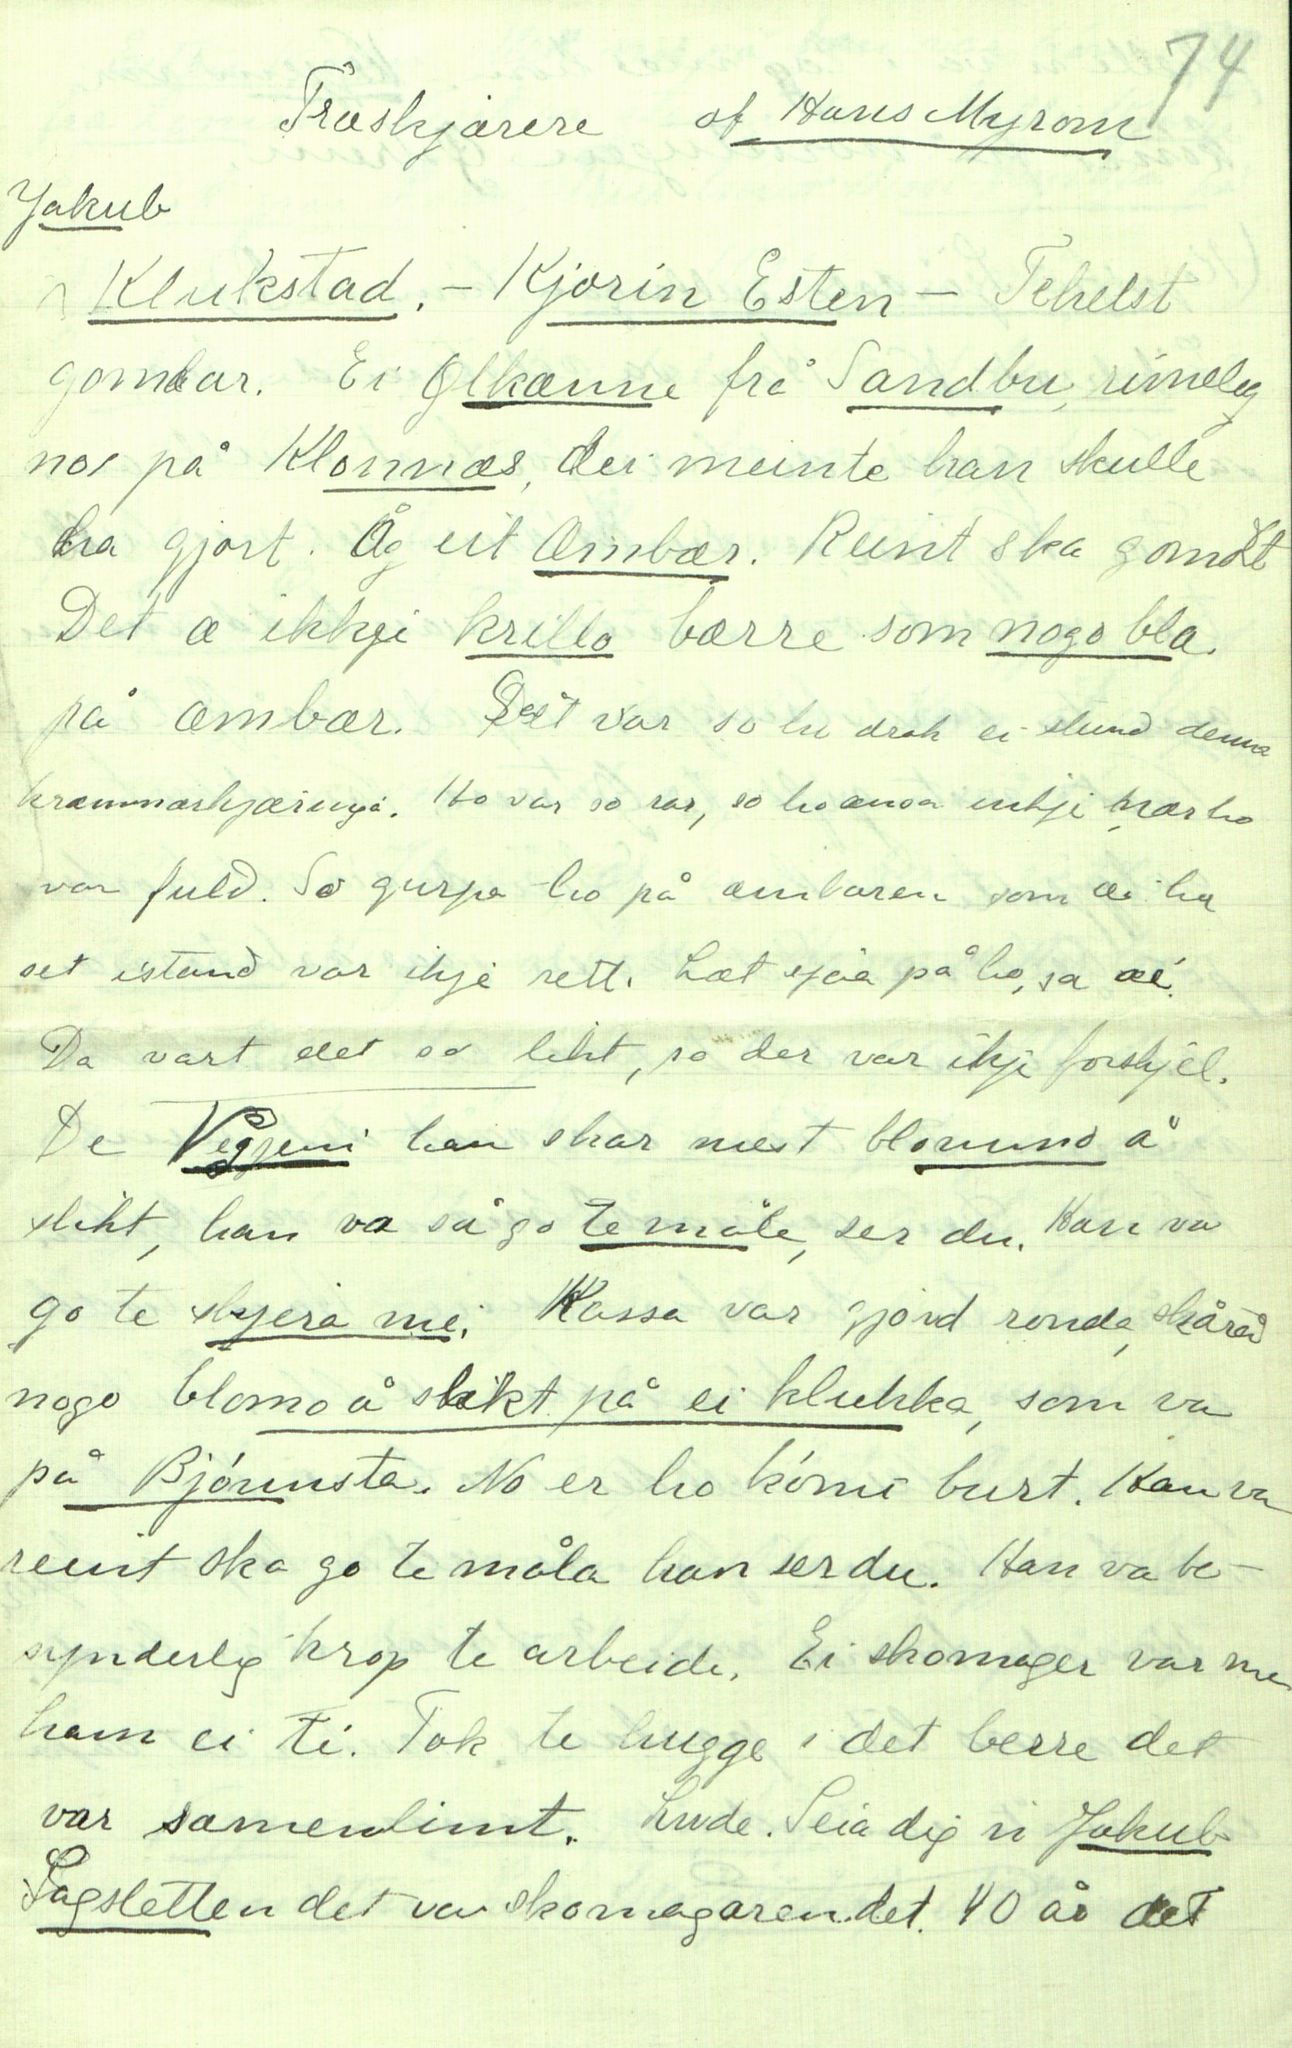 74
Træskjærere af Hans Myrom
Jakub
Klukstad. - Kjorin Esten - Tehelst
gombar. Ei Ølkanne frå Sandbu, rimeleg
nor på Klonnæs, dei meinte han skulle
ha gjort. Åg eit Ambær. Reint ska gomolt
Det æ ikkje krillo bærre som nogo bla.
på ambær. Det var so hu drak ei stund denna
kræmmarkjæringa. Ho var so rar, so ho ansa inkje nær ho
var fuld. So gurpa ho på ambaren som æi ha
set istand var ikje rett. Læt sjåa på ho, sa æi.
Da vart det so likt, so der var ikje forskjel.
De Veggjeni han skar mest blomund å
slikt, han va så go te måle, ser du. Han va
go te skjera mé. Kassa var gjord ronde, skåra
nogo blomo å slikt på ei klukka, som va
på Bjórnsta. No er ho kómi burt. Han va
reint ska go te måla han ser du. Han va be-
synderlig krop te arbeide. Ei skomager var me
ham ei ti. Tok te hugge i det berre det
var samenlimt. Lude. Seia dig ni Jakub
Sagsletten det va skomagaren det. 40 år det